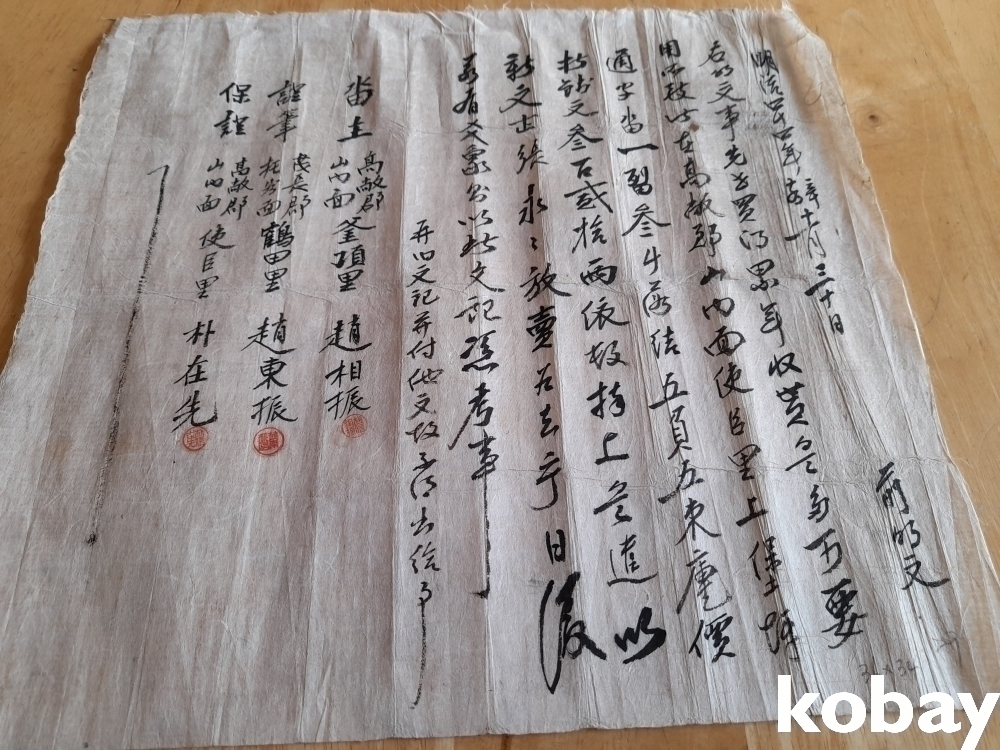 明治四十四年辛亥十一月三十日 前明文
右明文事先世買得累年收貰是多可要
用所致以在高敞郡山內面使臣里上堡坪
通字畓一㽝參斗落結五負五束庫價
折錢文參百貳拾兩依數捧上是遣以
新文一張永永放賣爲去乎日後
若有爻象則以此文記憑考事
幷旧文記幷付他文故不得出給事
畓主 高敞郡 山內面 釜項里 趙相振
證筆 茂長郡 面 鶴田里 趙東振
保證 高敞郡 山內面 使臣里 朴在先
31×34
kobay